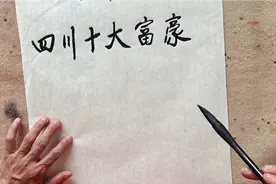 四川十大富豪